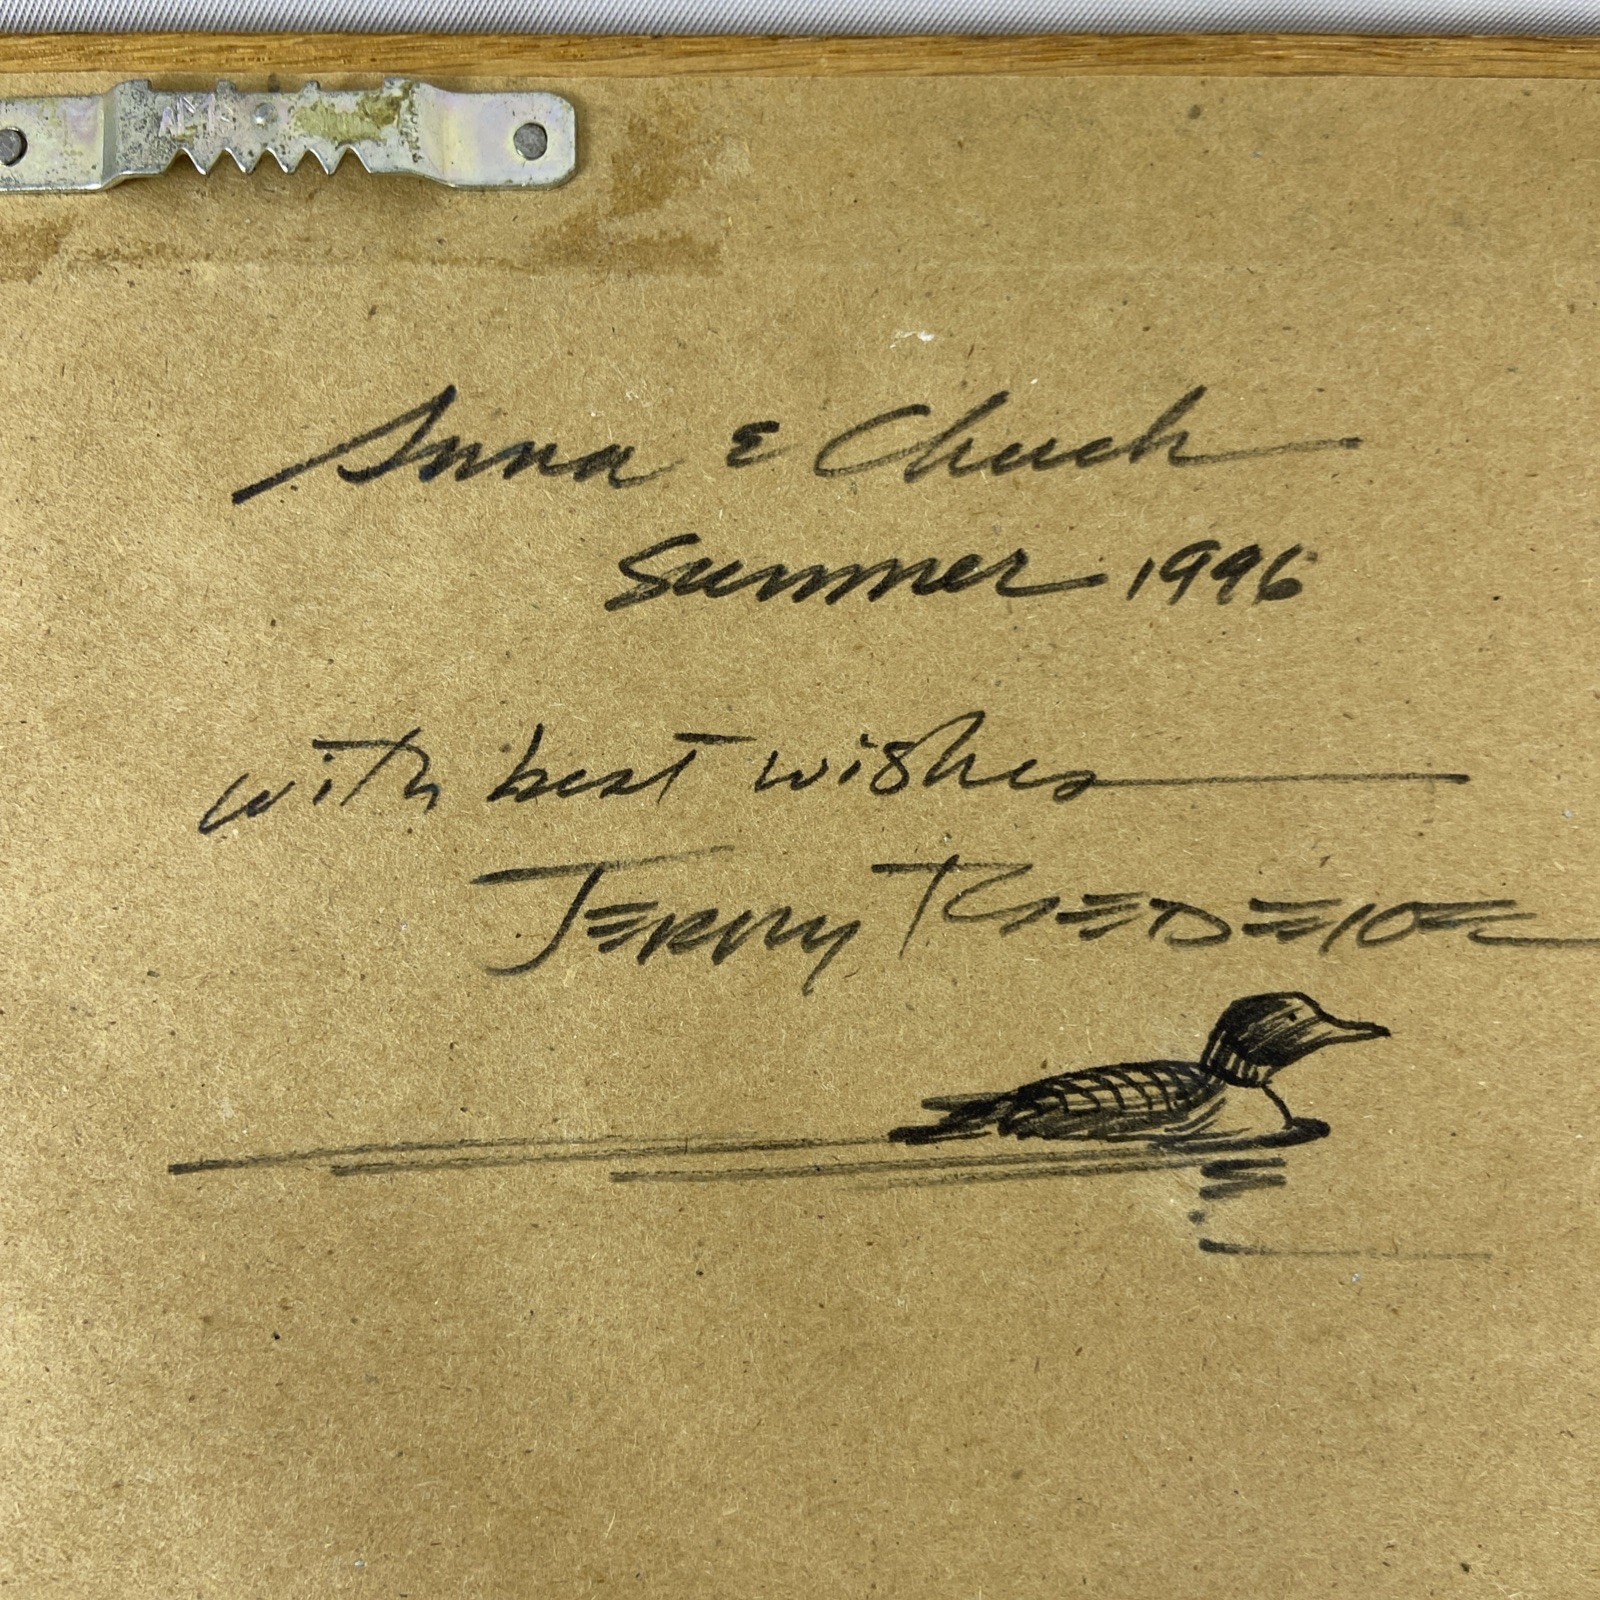 Anna & Chuck
Summer 1996
with best wishes
Jerry